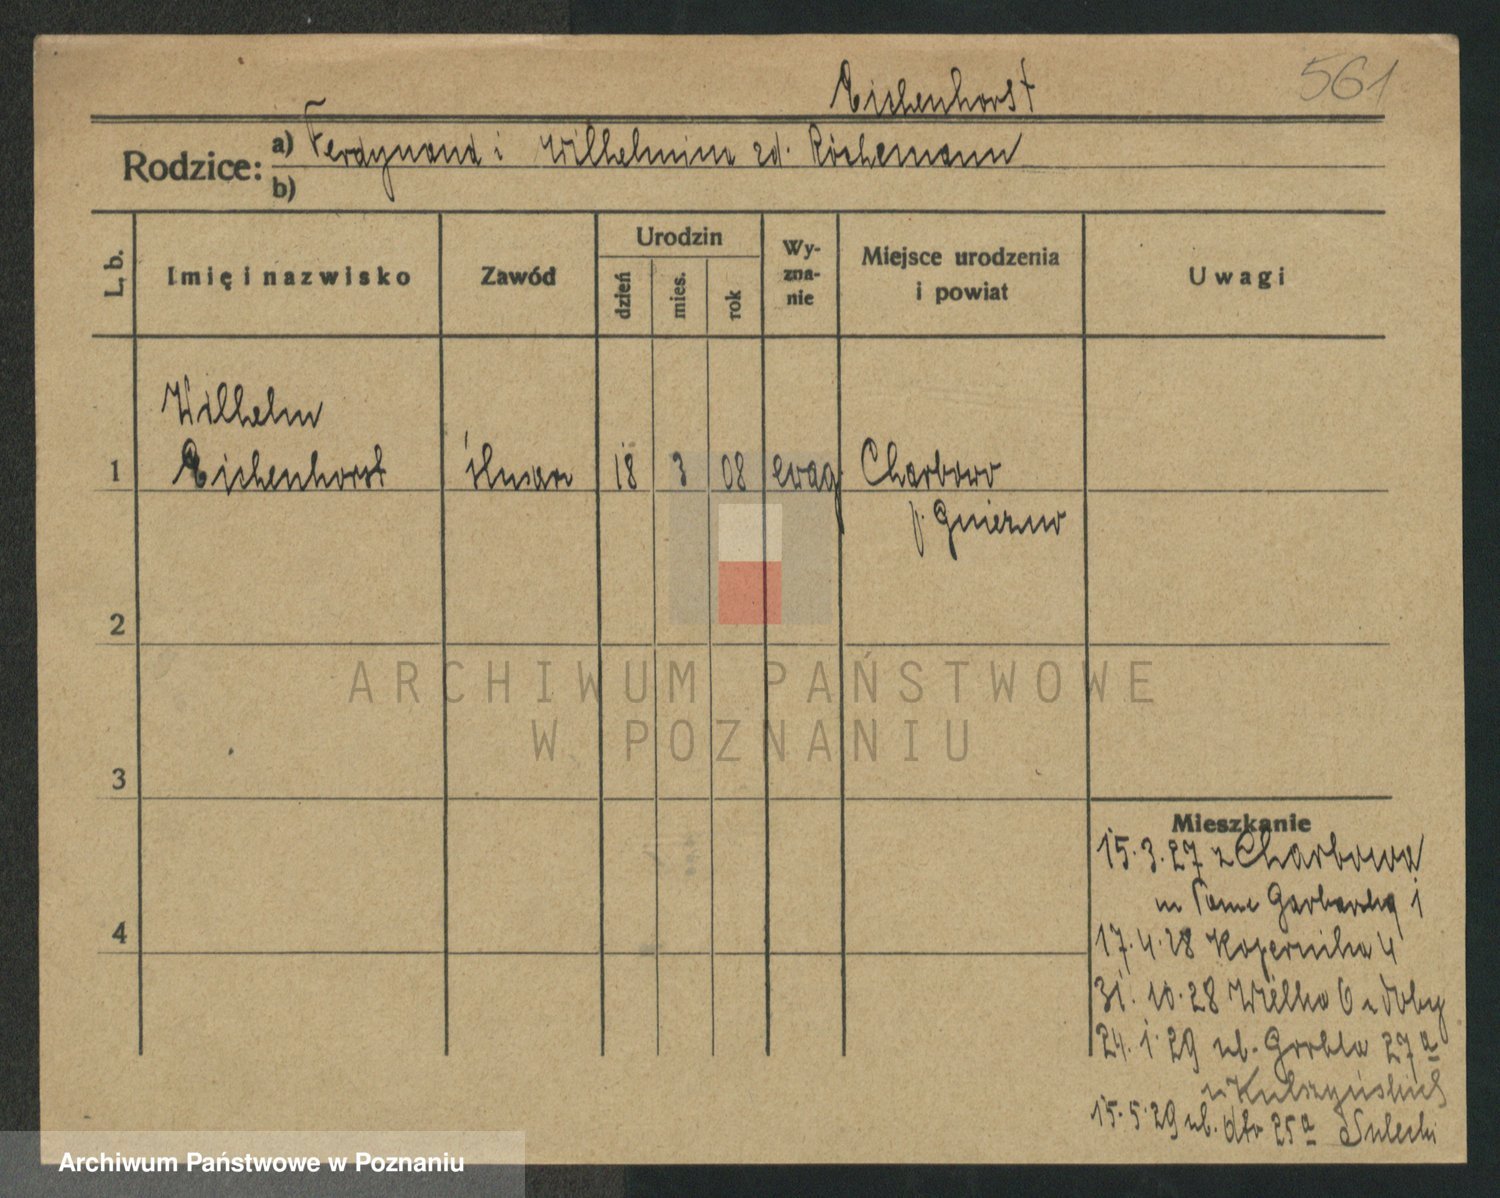 561
Eichenhorst
Rodzice: a) Ferdynand i Wilhelmina zd.
b)
L. b.
Imię i nazwisko
Zawód
Urodzin
dzień
mies.
rok
Wy-
zna-
nie
Miejsce urodzenia
i powiat
Uwagi
Wilhelm
1 Eichenhorst ślusarz 18 3 08 ewag Charbowo
p. Gniezno
2
3
4
Mieszkanie
15.3.27 z Charbowa
Garbarską 1
17.4.28 Kopernika 4
31.10.28 Wielka 6 z
24.1.29 ul. Grobla 27a
u Kulszyńskich
15.5.29 ul. dto 25a Sulecki
ARCHIWUM PAŃSTWOWE
W POZNANIU
Archiwum Państwowe w Poznaniu